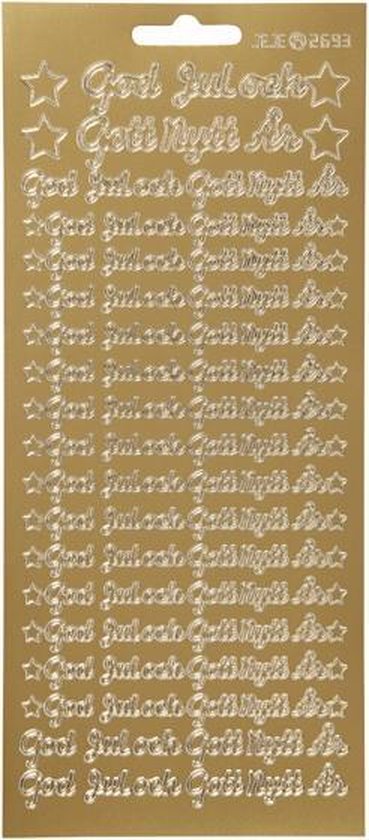 JEJE 2693
God Jul och
Gott Nytt År
God Jul och Gott Nytt År
God Jul och Gott Nytt År
God Jul och Gott Nytt År
God Jul och Gott Nytt År
God Jul och Gott Nytt År
God Jul och Gott Nytt År
God Jul och Gott Nytt År
God Jul och Gott Nytt År
God Jul och Gott Nytt År
God Jul och Gott Nytt År
God Jul och Gott Nytt År
God Jul och Gott Nytt År
God Jul och Gott Nytt År
God Jul och Gott Nytt År
God Jul och Gott Nytt År
God Jul och Gott Nytt År
God Jul och Gott Nytt År